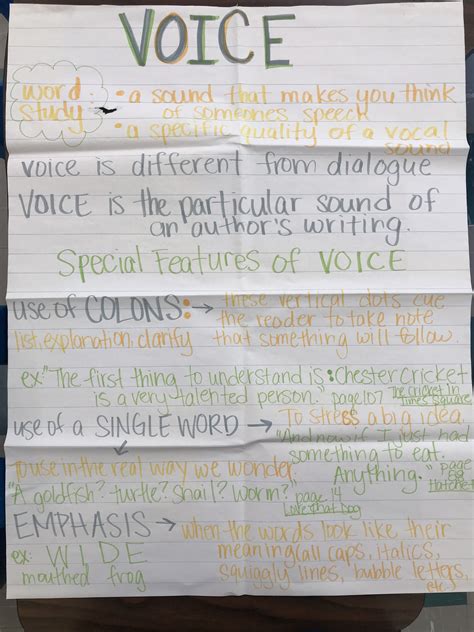 VOICE
word study
• a sound that makes you think
of someone's speech
• a specific quality of a vocal
sound
voice is different from dialogue
VOICE is the particular sound of
an author's writing.
Special Features of VOICE
use of COLONS: → these vertical dots cue
the reader to take note
list, explanation, clarify that something will follow.
ex: "The first thing to understand is: Chester Cricket
is a very talented person." page 107 The Cricket in Times Square
use of a SINGLE WORD → To stress a big idea.
"And now if I just had
something to eat.
Anything." page Hatchet
to use in the real way we wonder
"A goldfish? turtle? Snail? Worm?" page 14
Love That Dog
EMPHASIS → when the words look like their
meaning (all caps, italics,
squiggly lines, bubble letters,
etc.
ex: WIDE
mouthed frog